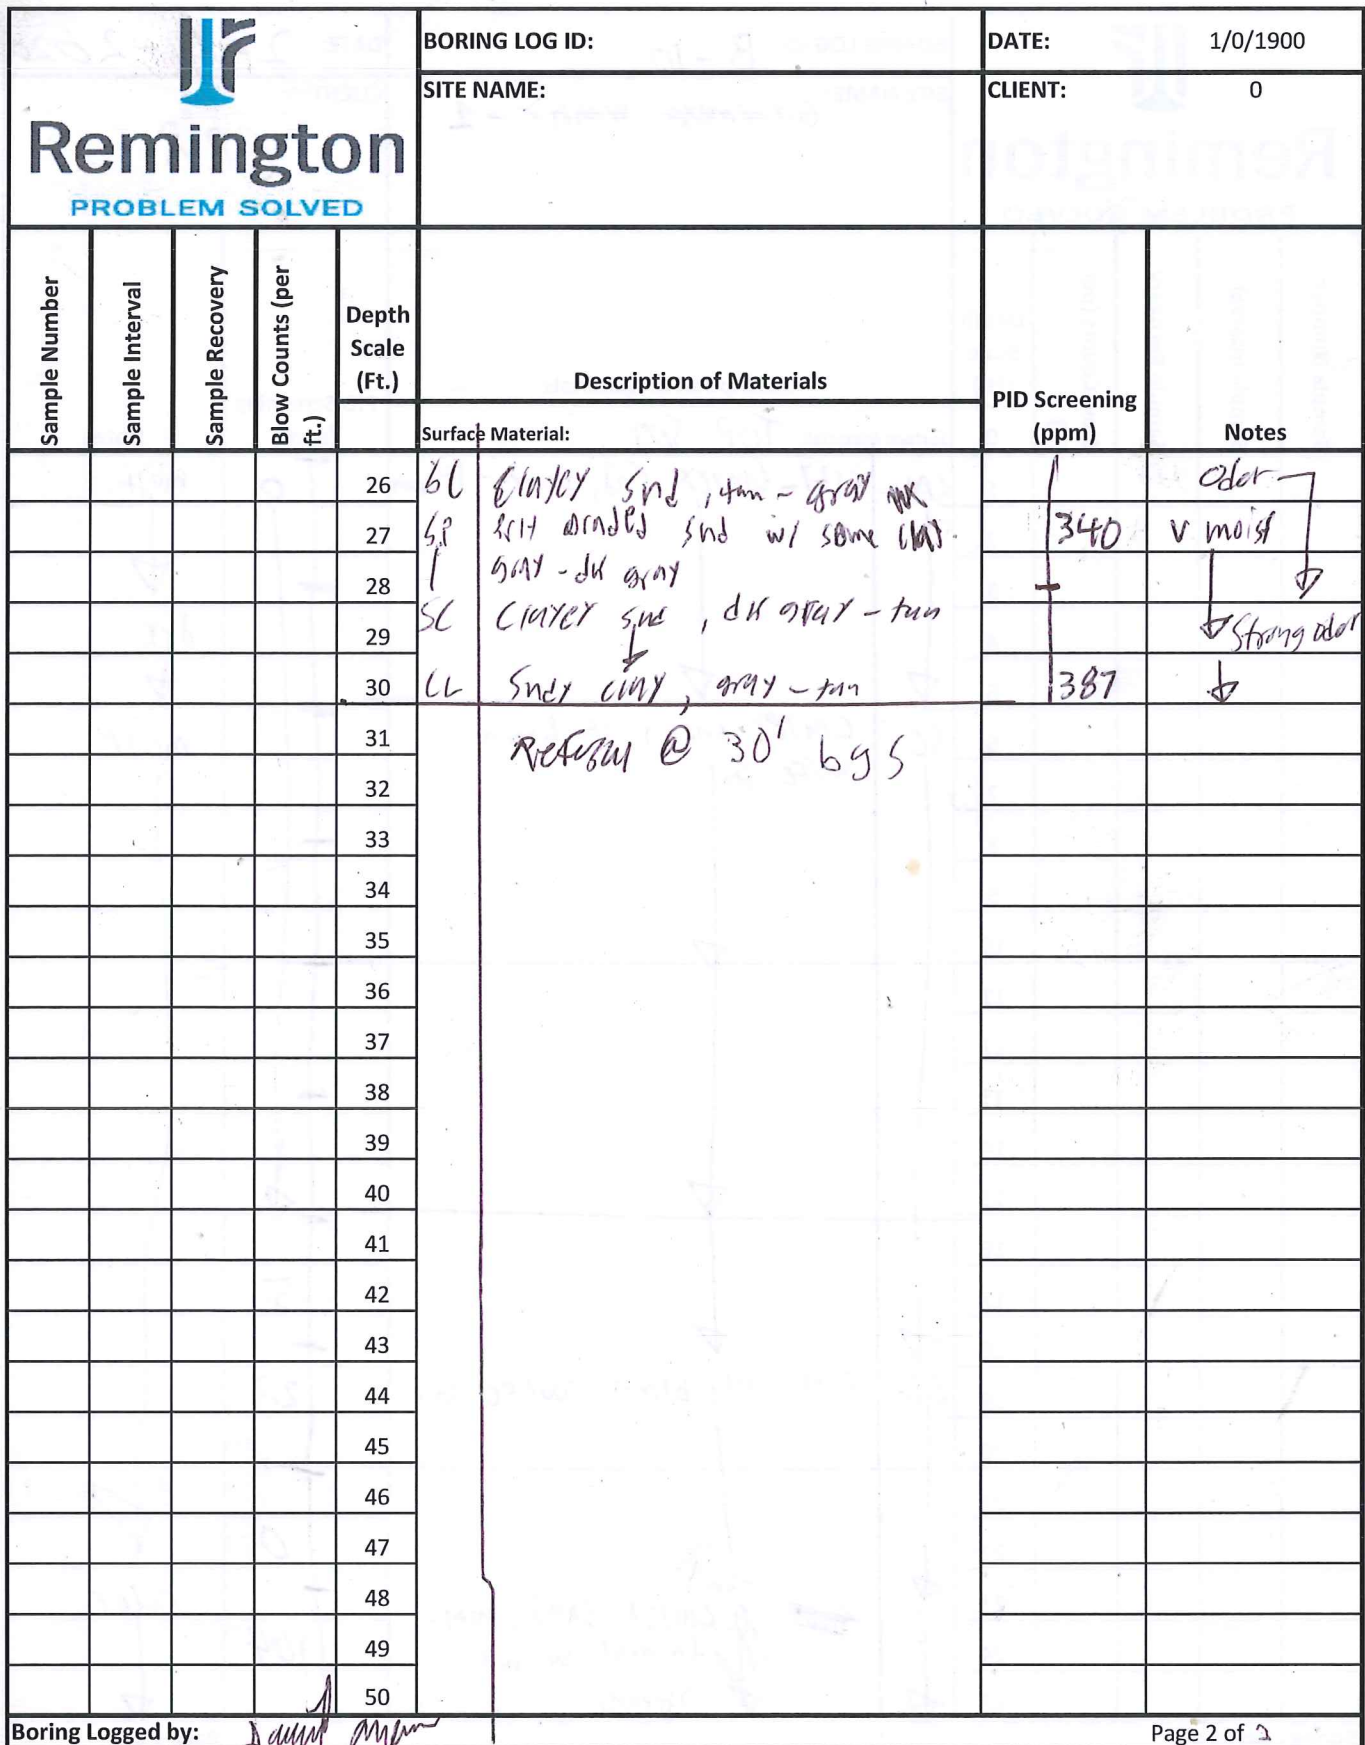 Remington
PROBLEM SOLVED
BORING LOG ID:
DATE: 1/0/1900
SITE NAME:
CLIENT: 0
Sample Number
Sample Interval
Sample Recovery
Blow Counts (per ft.)
Depth Scale (Ft.)
Description of Materials
Surface Material:
PID Screening (ppm)
Notes
26 SC Clayey snd, tan - gray Odor
27 SP snd w/ some clay. 340 v moist
28 gray - dk gray
SC Clayey snd, dk gray - tan
29 Strong odor
30 CL Sndy clay, gray - tan 387
31 Refusal @ 30' bgs
32
33
34
35
36
37
38
39
40
41
42
43
44
45
46
47
48
49
50
Boring Logged by: David
Page 2 of 2